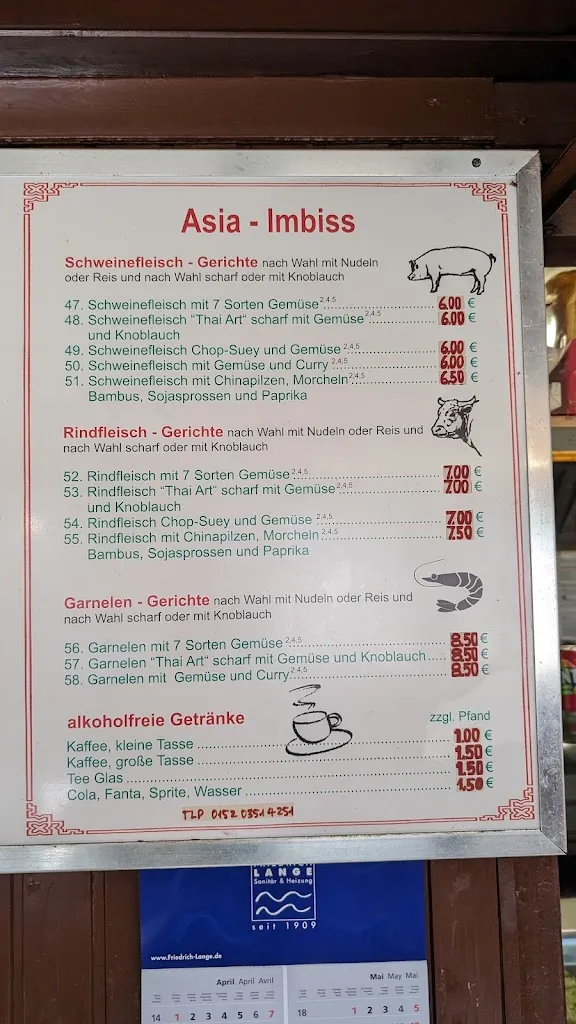 Asia - Imbiss
Schweinefleisch - Gerichte nach Wahl mit Nudeln
oder Reis und nach Wahl scharf oder mit Knoblauch
47. Schweinefleisch mit 7 Sorten Gemüse 2,4,5 6.00 €
48. Schweinefleisch "Thai Art" scharf mit Gemüse 2,4,5 6.00 €
und Knoblauch
49. Schweinefleisch Chop-Suey und Gemüse 2,4,5 6.00 €
50. Schweinefleisch mit Gemüse und Curry 2,4,5 6.00 €
51. Schweinefleisch mit Chinapilzen, Morcheln 2,4,5 6.50 €
Bambus, Sojasprossen und Paprika
Rindfleisch - Gerichte nach Wahl mit Nudeln oder Reis und
nach Wahl scharf oder mit Knoblauch
52. Rindfleisch mit 7 Sorten Gemüse 2,4,5 7.00 €
53. Rindfleisch "Thai Art" scharf mit Gemüse 2,4,5 7.00 €
und Knoblauch
54. Rindfleisch Chop-Suey und Gemüse 2,4,5 7.00 €
55. Rindfleisch mit Chinapilzen, Morcheln 2,4,5 7.50 €
Bambus, Sojasprossen und Paprika
Garnelen - Gerichte nach Wahl mit Nudeln oder Reis und
nach Wahl scharf oder mit Knoblauch
56. Garnelen mit 7 Sorten Gemüse 2,4,5 8.50 €
57. Garnelen "Thai Art" scharf mit Gemüse und Knoblauch 8.50 €
58. Garnelen mit Gemüse und Curry 2,4,5 8.50 €
alkoholfreie Getränke zzgl. Pfand
Kaffee, kleine Tasse 1.00 €
Kaffee, große Tasse 1.50 €
Tee Glas 1.50 €
Cola, Fanta, Sprite, Wasser 1.50 €
TLP 0152 0351 4251
FRIEDRICH
LANGE
Sanitär & Heizung
seit 1909
www.Friedrich-Lange.de
April April Avril Mai May Mai
14 1 2 3 4 5 6 7 18 1 2 3 4 5